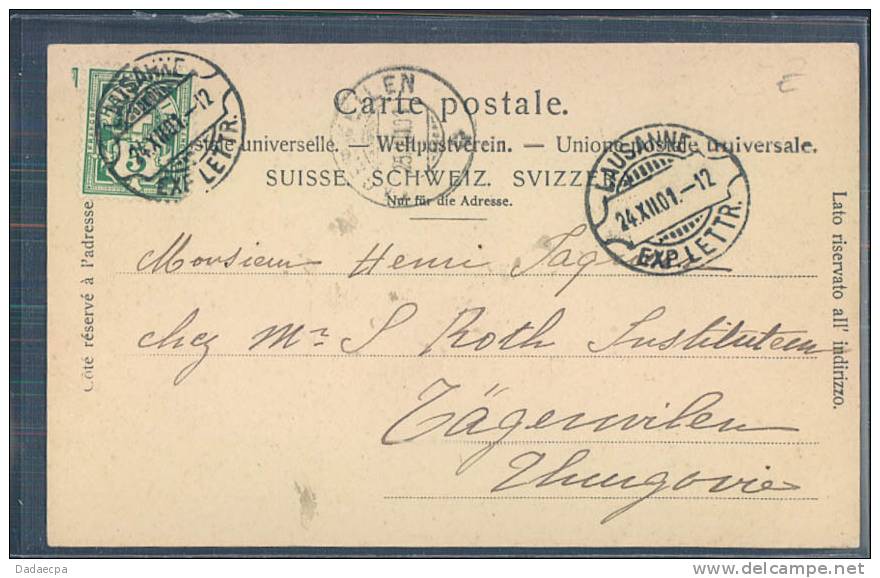 LAUSANNE
24.XII.01.-12
EXP. LETTR.
5
Carte postale.
postale universelle. — Weltpostverein. — Unione postale universale.
SUISSE. SCHWEIZ. SVIZZERA
Nur für die Adresse.
LAUSANNE
24.XII.01.-12
EXP. LETTR.
Côté réservé à l'adresse
Lato riservato all' indirizzo.
Monsieur Henri
chez Mr. S Roth Instituteur
Tägerwilen
Thurgovie
Dadaecpa
delcampe.net